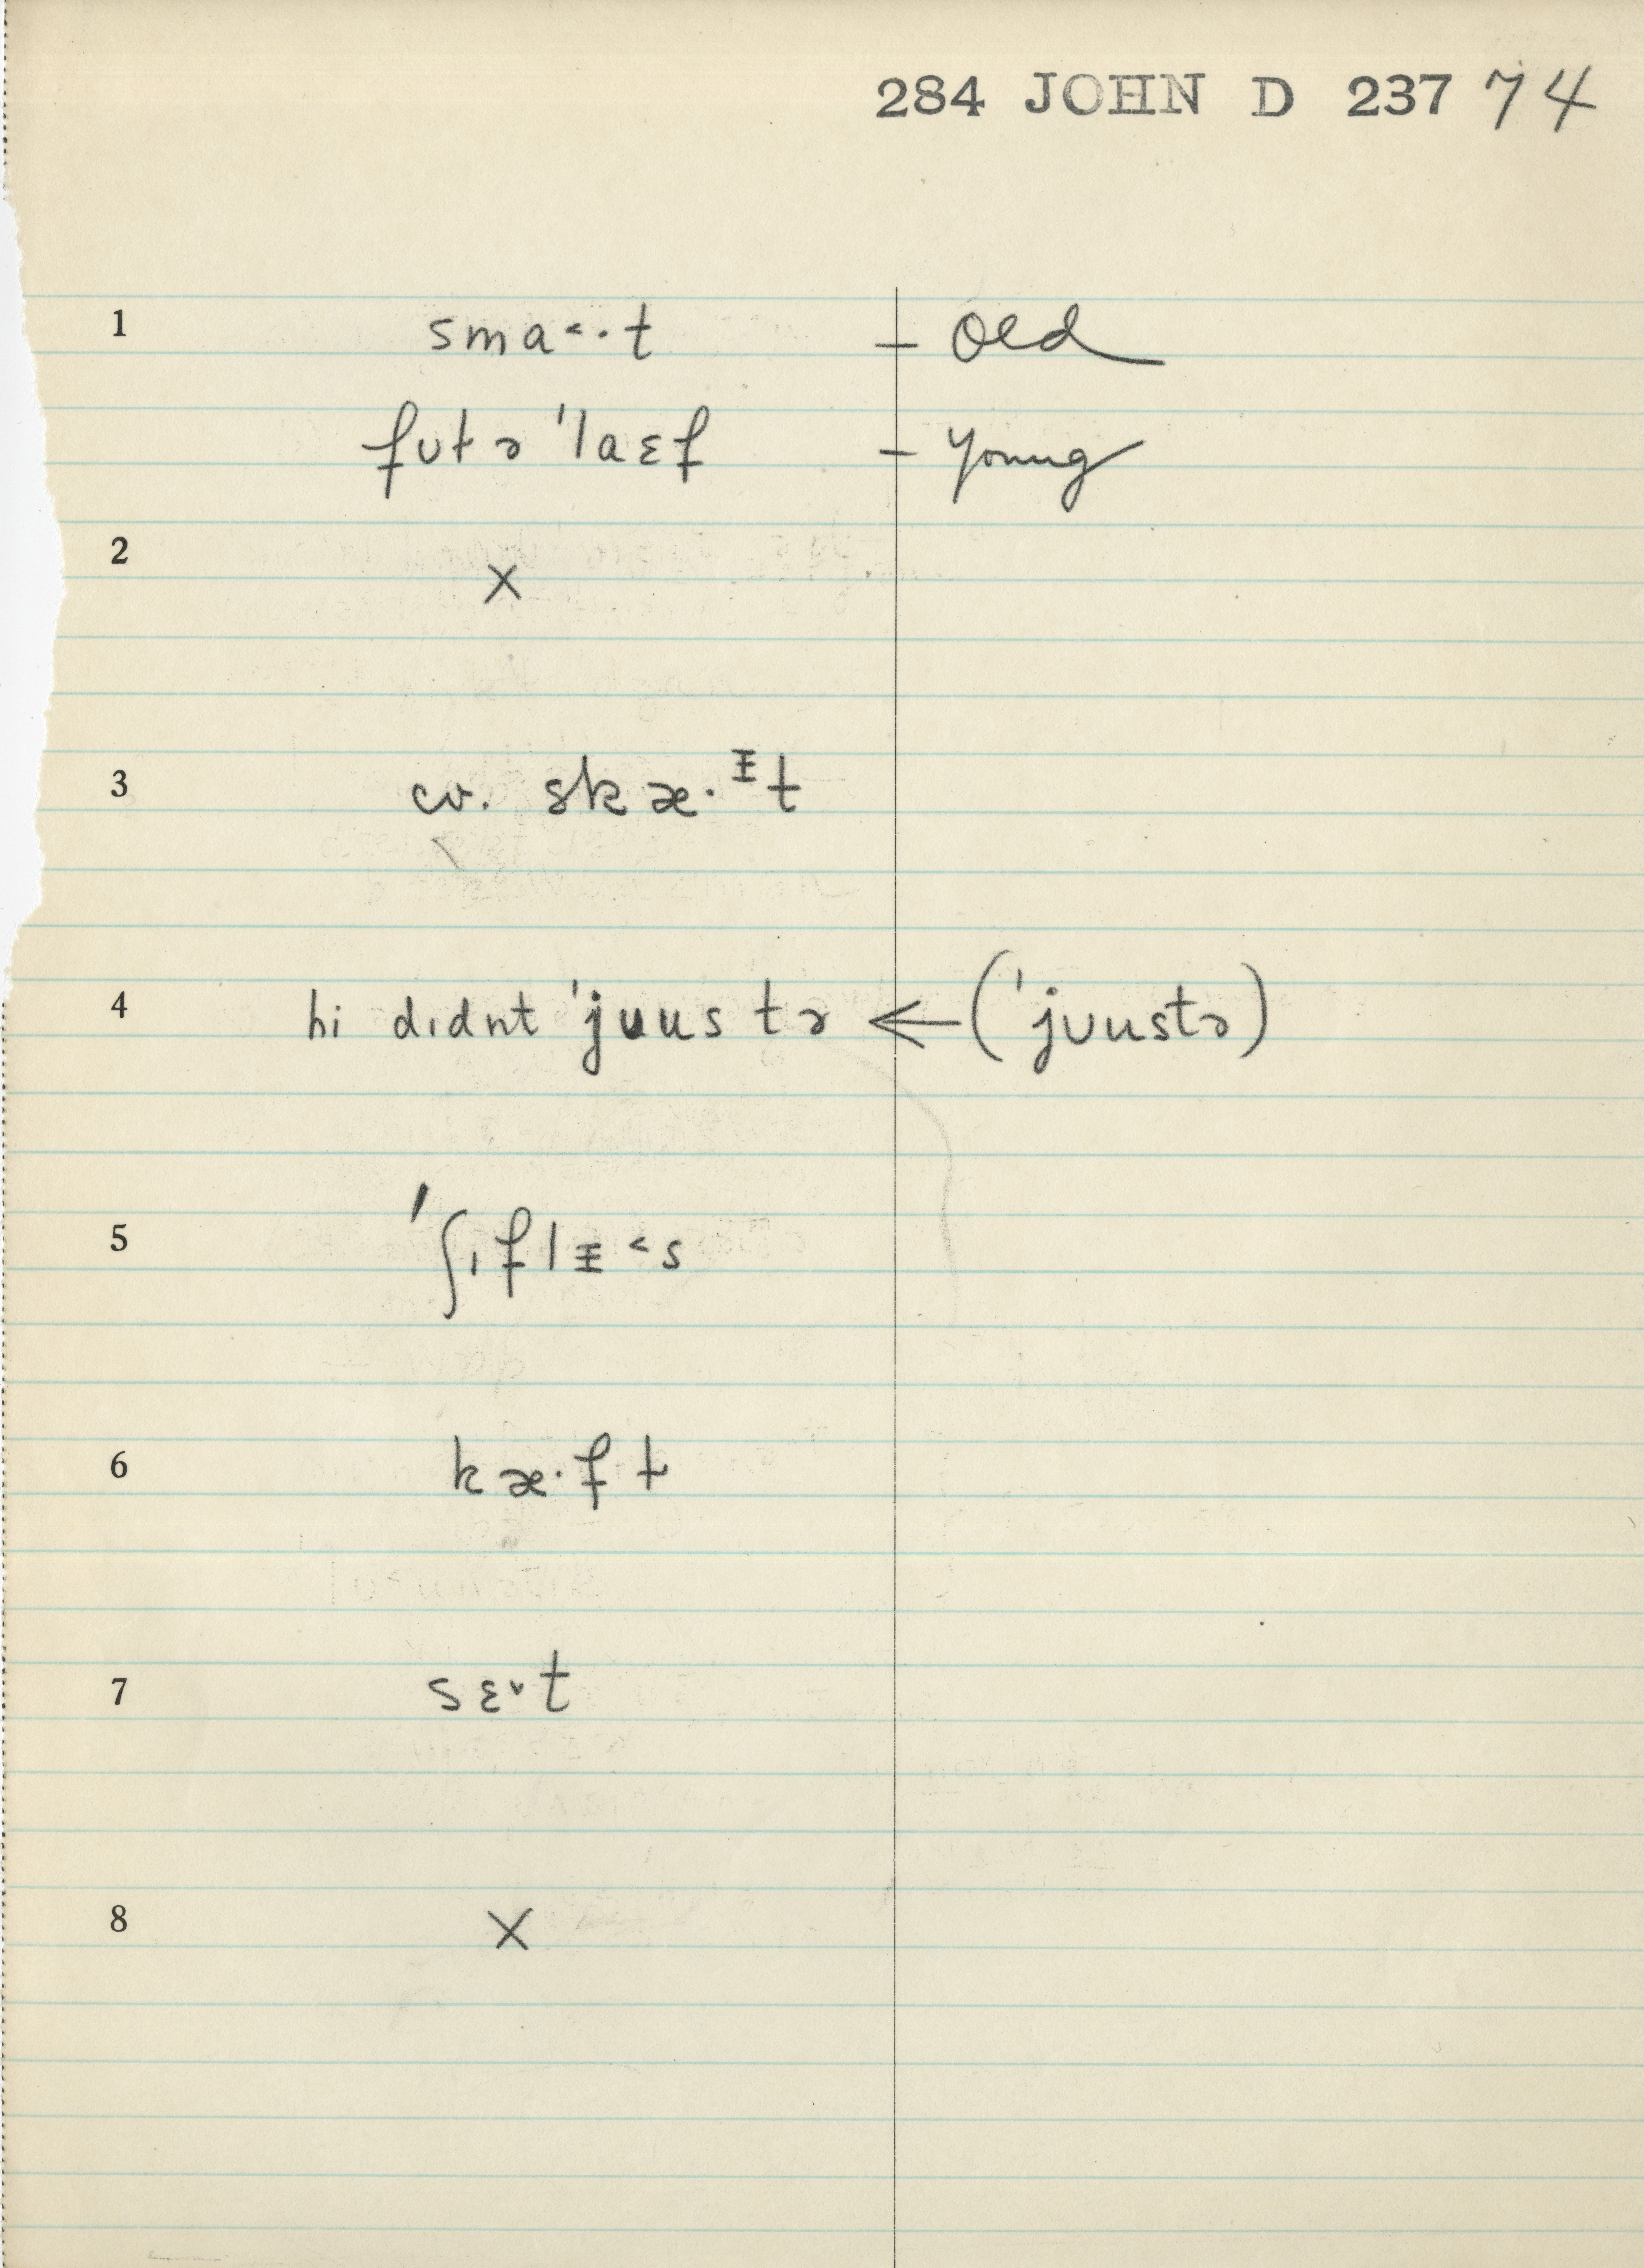 284 JOHN D 237 74
1 sma˂·t – Old
futə 'laɛf – Young
2 ×
3 cv. skæ·ᵻt
4 hi dɪdnt 'jʊus tə ← ('jʊustə)
5 'ʃɪflᵻ˂s
6 kæ·ft
7 sɛ˅t
8 ×